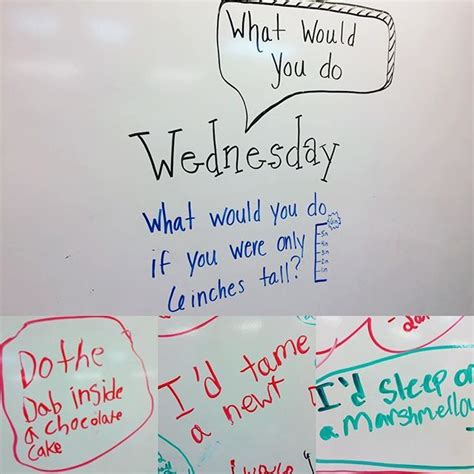 What Would
You do
Wednesday
What would you do
if you were only
6 inches tall?
5in
4in
3in
2in
1in
Do the
Dab inside
a chocolate
cake
I'd tame
a newt
I'd sleep on
a Marshmellow